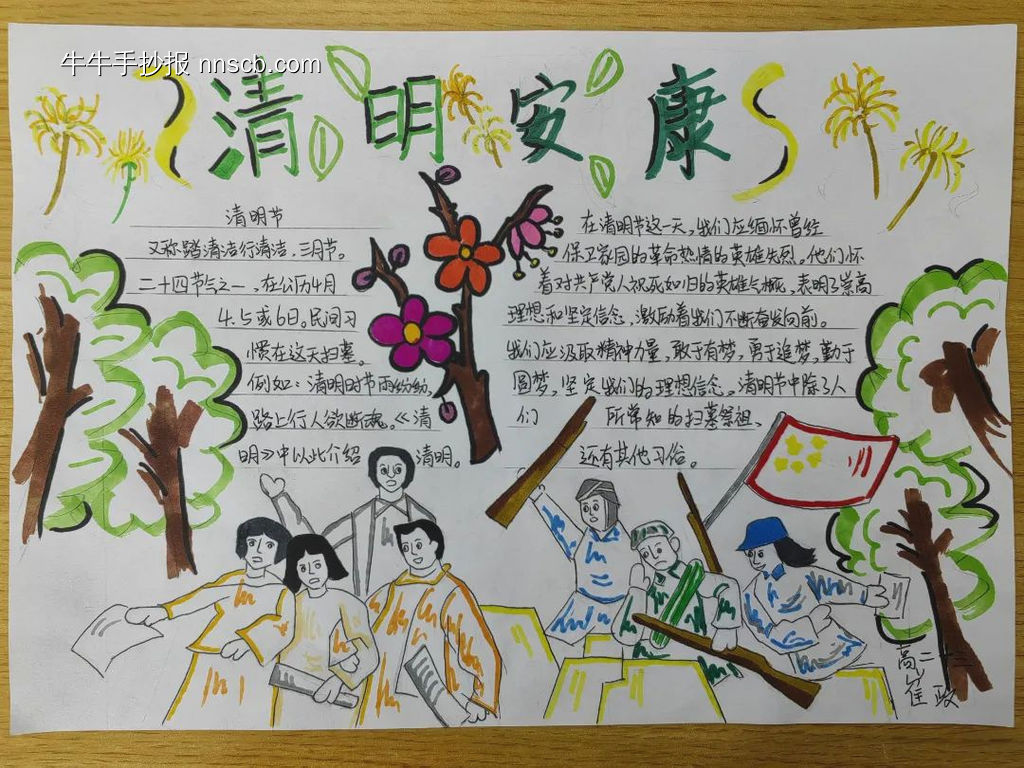 牛牛手抄报 nnscb.com
清明安康
清明节
又称踏清洁行清洁、三月节。
二十四节气之一、在公历4月
4.5或6日。民间习
惯在这天扫墓。
例如:清明时节雨纷纷,
路上行人欲断魂。《清
明》中以此介绍 清明。
在清明节这一天,我们应缅怀曾经
保卫家园的革命热情的英雄先烈。他们怀
着对共产党人视死如归的英雄气概,表明了崇高
理想和坚定信念,激励着我们不断奋发向前。
我们应汲取精神力量,敢于有梦,勇于追梦,勤于
圆梦,坚定我们的理想信念。清明节中除了人
们 所常知的扫墓祭祖,
还有其他习俗。
高二十三
崔政